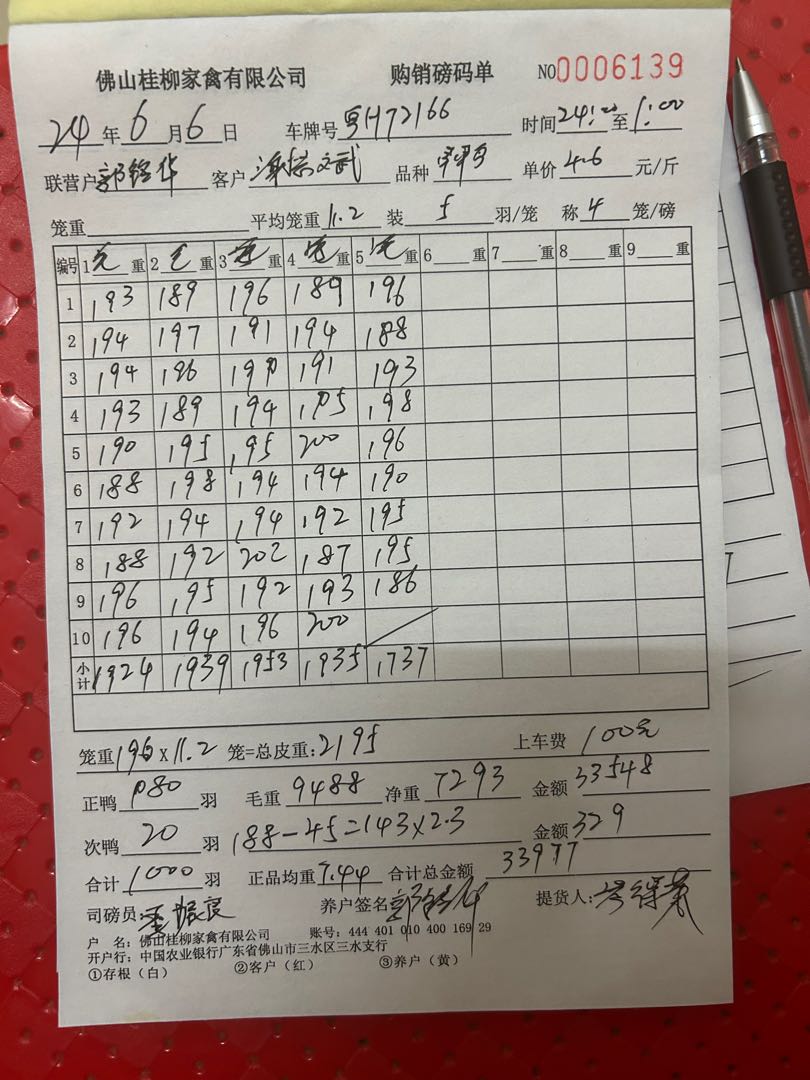 佛山桂柳家禽有限公司 购销磅码单 NO0006139
24年6月6日 车牌号粤H72166 时间24:00至1:00
联营户郭锦华 客户 品种 单价4.6元/斤
笼重 平均笼重11.2 装5羽/笼 称4笼/磅
编号 1毛重 2毛重 3毛重 4毛重 5毛重 6重 7重 8重 9重
1 193 189 196 189 196
2 194 197 191 194 188
3 194 196 191 193
4 193 189 194 195 198
5 190 195 195 200 196
6 188 198 194 194 190
7 192 194 194 192 195
8 188 192 202 187 195
9 196 195 192 193 186
10 196 194 196 200
小计 1924 1939 1953 1935 1737
笼重196x11.2笼=总皮重:2195 上车费100元
正鸭980羽 毛重9488 净重7293 金额33548
次鸭20羽 188-45=143x2.3 金额329
合计1000羽 正品均重7.44 合计总金额33977
司磅员: 养户签名 提货人:
户 名:佛山桂柳家禽有限公司 账号:444 401 010 400 169 29
开户行:中国农业银行广东省佛山市三水区三水支行
①存根(白) ②客户(红) ③养户(黄)